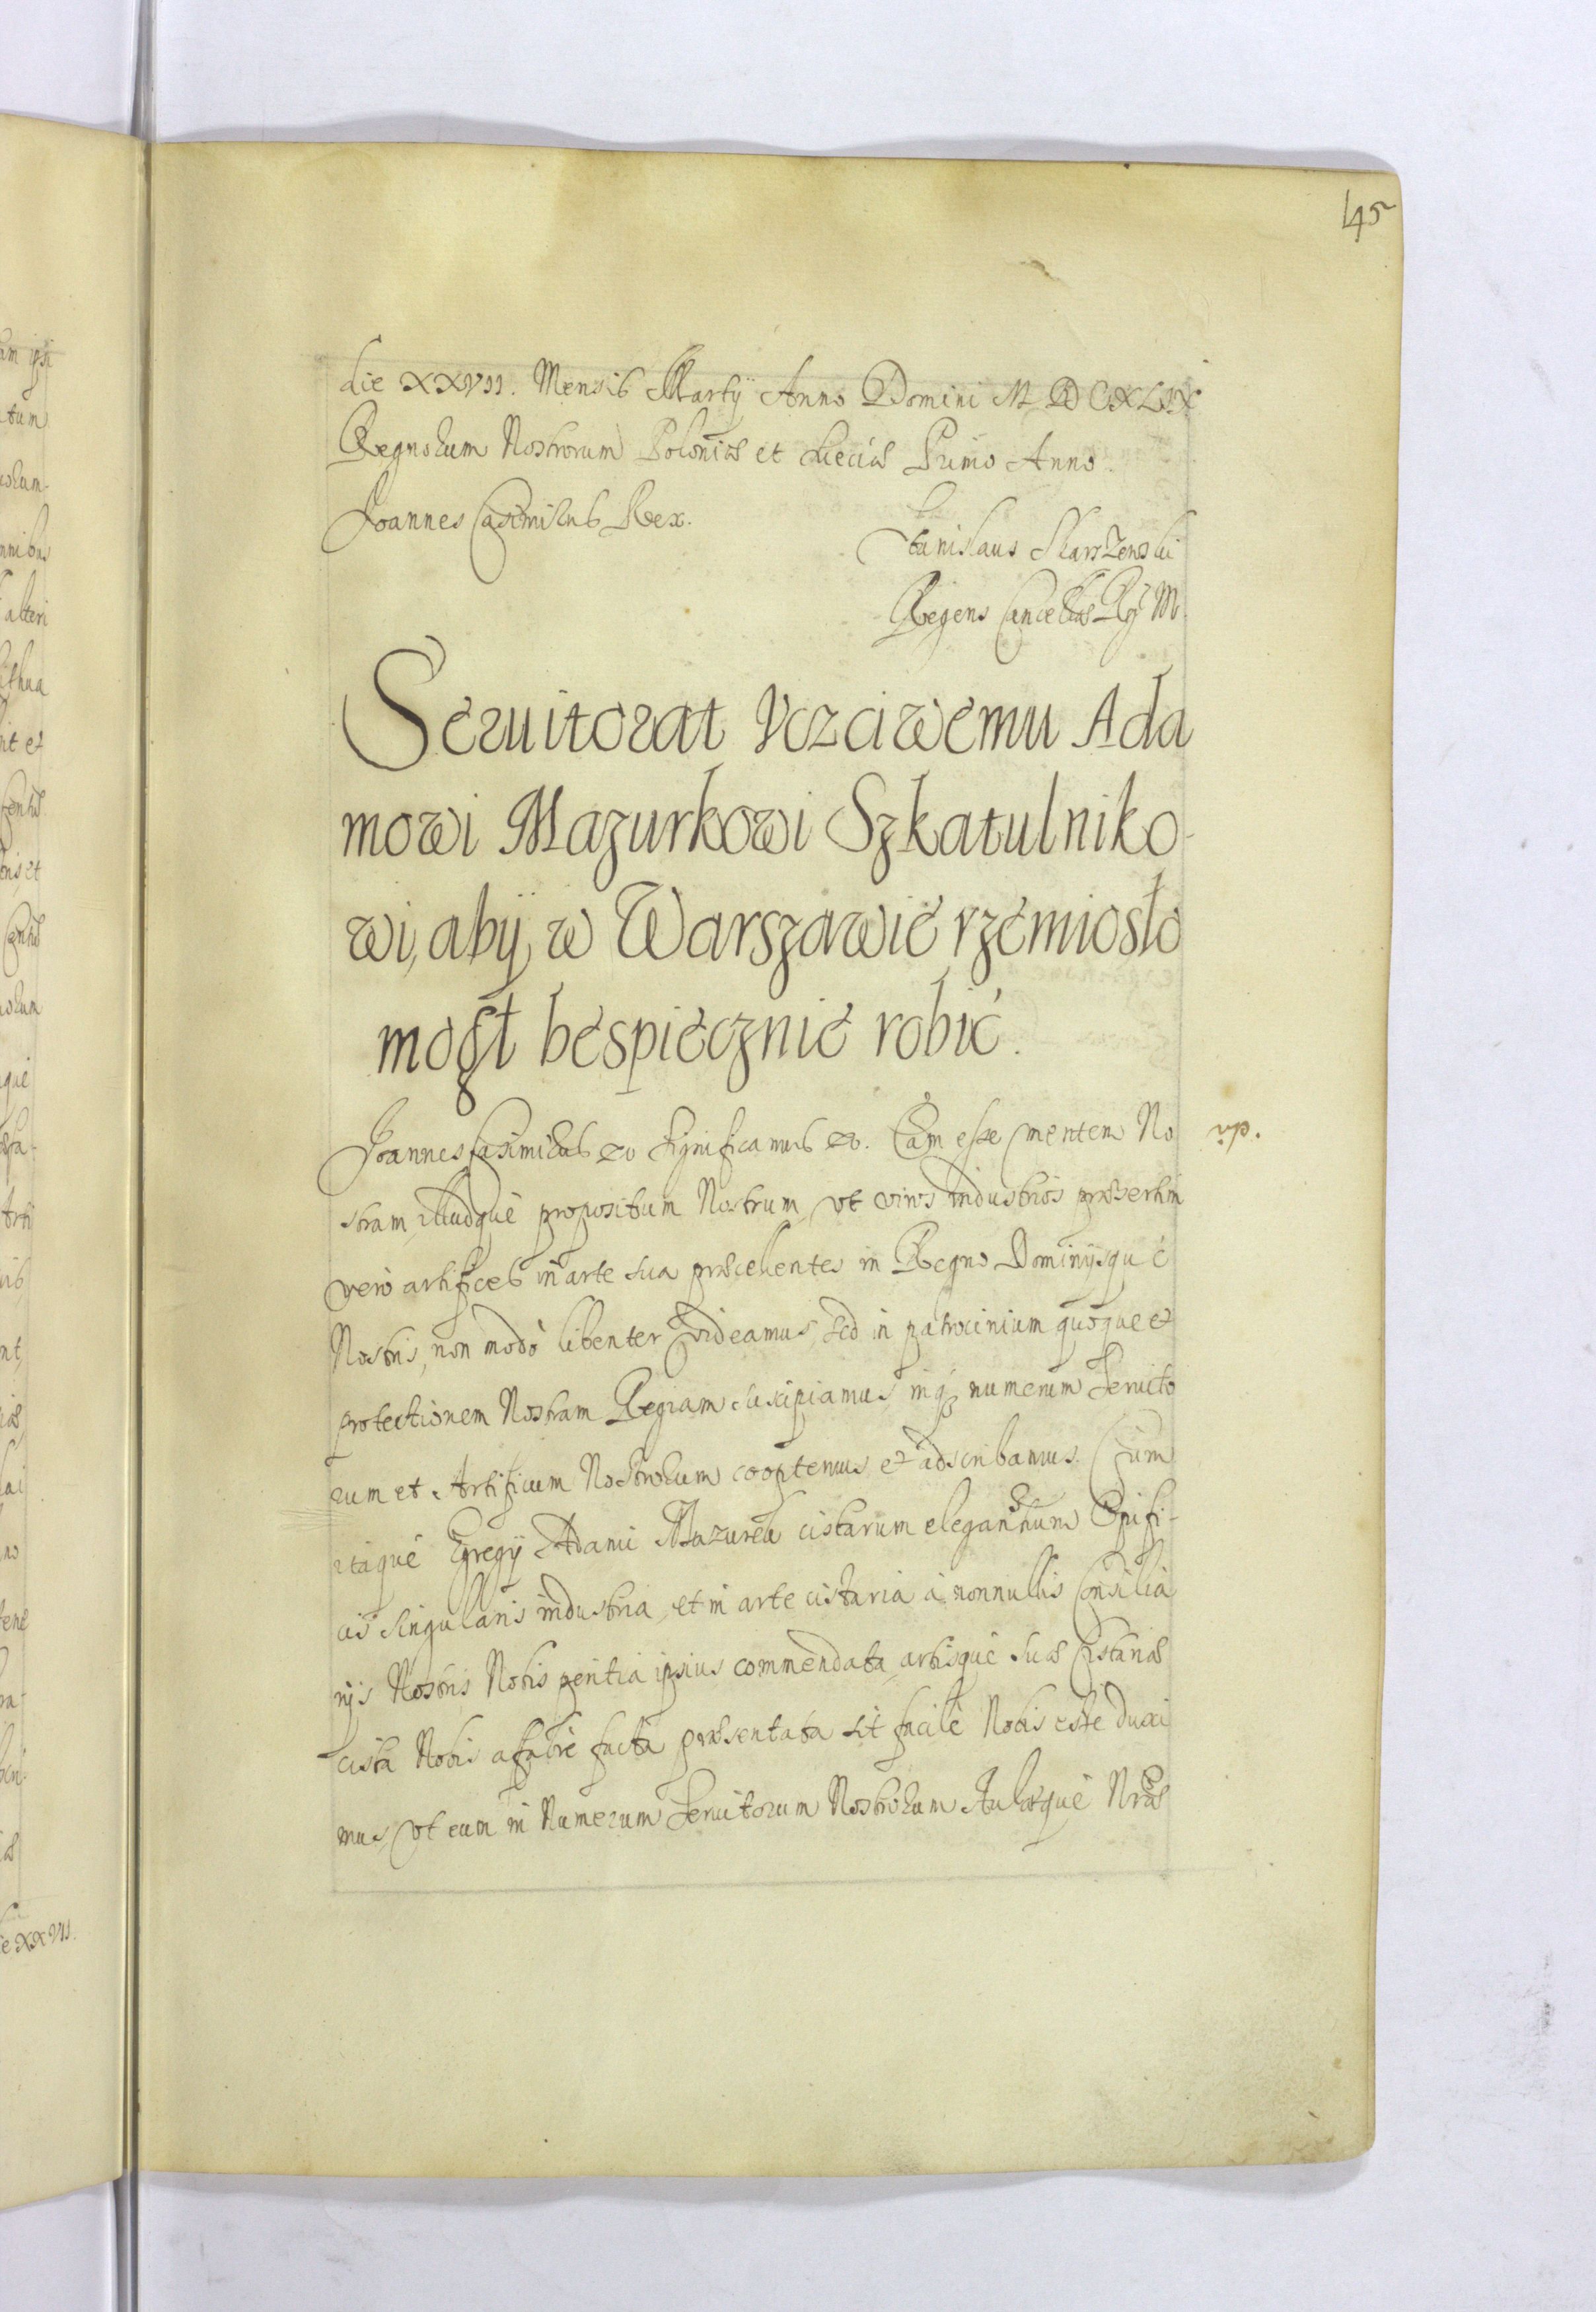 145
die XXVII. Mensis Martÿ Anno Domini MDCXLIX
Regnorum Nostrorum Poloniæ et Sueciæ Primo Anno.
Joannes Casimirus Rex.
Stanislaus Skarszewski
Regens Cancellæ Rg̃ M
Seruitorat Vczciwemu Ada
mowi Mazurkowi Szkatulniko-
wi, abÿ w Warszawie rzemiosło
mogł bespiecznie robić.
Joannes Casimirus &c Significamus &c. Eam esse mentem No
stram, illudque propositum Nostrum, vt viros industrios præsertim
vero artifices in arte sua præcellentes in Regno Dominÿsque
Nostris, non modò libenter videamus, sed in patrocinium quoque et
protectionem Nostram Regiam suscipiamus, inq; numerum Seruito
rum et Artificum Nostrorum cooptemus et adscribamus. Cum
itaque Egregÿ Adami Mazurek cistarum elegantium Opifi-
cis singularis industria, et in arte cistaria à nonnullis Consilia
rÿs Nostris Nobis peritia ipsius commendata, artisque suæ Cistariæ
cista Nobis affabrè facta præsentata sit facile Nobis esse duxi
mus, vt eum in Numerum Seruitorum Nostrorum Aulæque Nræ